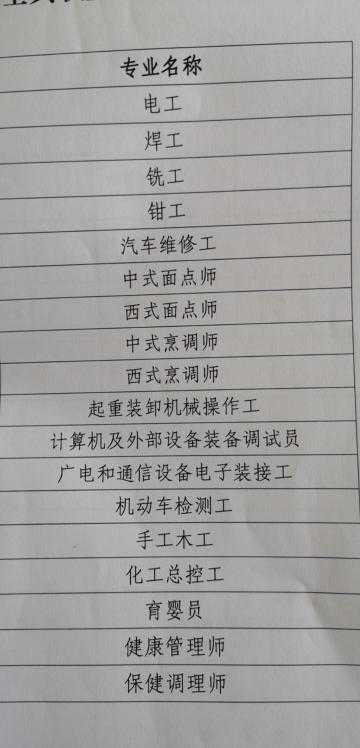 专业名称
电工
焊工
铣工
钳工
汽车维修工
中式面点师
西式面点师
中式烹调师
西式烹调师
起重装卸机械操作工
计算机及外部设备装备调试员
广电和通信设备电子装接工
机动车检测工
手工木工
化工总控工
育婴员
健康管理师
保健调理师